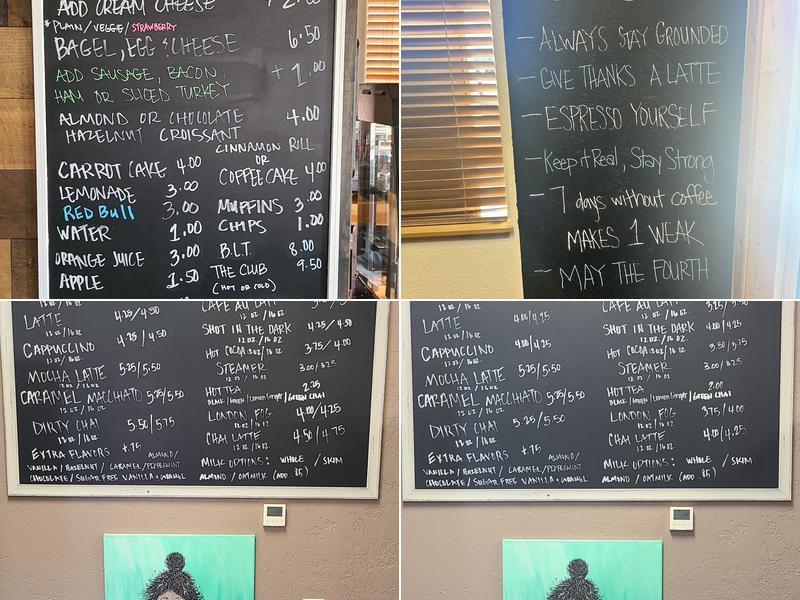 ADD CREAM CHEESE + 2.00
* PLAIN / VEGGE / STRAWBERRY
BAGEL, EGG & CHEESE 6.50
ADD SAUSAGE, BACON, + 1.00
HAM OR SLICED TURKEY
ALMOND OR CHOCOLATE 4.00
HAZELNUT CROISSANT
CARROT CAKE 4.00
LEMONADE 3.00
RED Bull 3.00
WATER 1.00
ORANGE JUICE 3.00
APPLE 1.50
CINNAMON RILL
OR
COFFEE CAKE 4.00
MUFFINS 3.00
CHIPS 1.00
B.L.T. 8.00
THE CLUB 9.50
(HOT OR COLD)
- ALWAYS STAY GROUNDED
- GIVE THANKS A LATTE
- ESPRESSO YOURSELF
- Keep it Real, Stay Strong
- 7 days without coffee
MAKES 1 WEAK
- MAY THE FOURTH
12 oz / 16 oz
LATTE 4.25/4.50
12 oz / 16 oz
CAPPUCCINO 4.25/4.50
12 oz / 16 oz
MOCHA LATTE 5.25/5.50
12 oz / 16 oz
CARAMEL MACCHIATO 5.25/5.50
12 oz / 16 oz
DIRTY CHAI 5.50/5.75
12 oz / 16 oz
EXTRA FLAVORS +.75 ALMOND/
VANILLA / HAZELNUT / CARAMEL / PEPPERMINT
CHOCOLATE / SUGAR FREE VANILLA & CARAMEL
CAFE AU LAIT
12 oz / 16 oz
SHOT IN THE DARK 4.25/4.50
12 oz / 16 oz
HOT COCOA 12 oz / 16 oz 3.75/4.00
STEAMER 3.00/3.25
12 oz / 16 oz
HOT TEA 2.25
BLACK / GREEN / LEMON GINGER / GREEN CHAI
LONDON FOG 4.00/4.25
12 oz / 16 oz
CHAI LATTE 4.50/4.75
12 oz / 16 oz
MILK OPTIONS: WHOLE / SKIM
ALMOND / OATMILK (ADD $.5)
12 oz / 16 oz
LATTE 4.00/4.25
12 oz / 16 oz
CAPPUCCINO 4.00/4.25
12 oz / 16 oz
MOCHA LATTE 5.25/5.50
12 oz / 16 oz
CARAMEL MACCHIATO 5.25/5.50
12 oz / 16 oz
DIRTY CHAI 5.25/5.50
12 oz / 16 oz
EXTRA FLAVORS +.75 ALMOND/
VANILLA / HAZELNUT / CARAMEL / PEPPERMINT
CHOCOLATE / SUGAR FREE VANILLA & CARAMEL
CAFE AU LAIT
12 oz / 16 oz
SHOT IN THE DARK 4.00/4.25
12 oz / 16 oz
HOT COCOA 12 oz / 16 oz 3.50/3.75
STEAMER 3.00/3.25
12 oz / 16 oz
HOT TEA 2.00
BLACK / GREEN / LEMON GINGER / GREEN CHAI
LONDON FOG 3.75/4.00
12 oz / 16 oz
CHAI LATTE 4.00/4.25
12 oz / 16 oz
MILK OPTIONS: WHOLE / SKIM
ALMOND / OATMILK (ADD $.5)